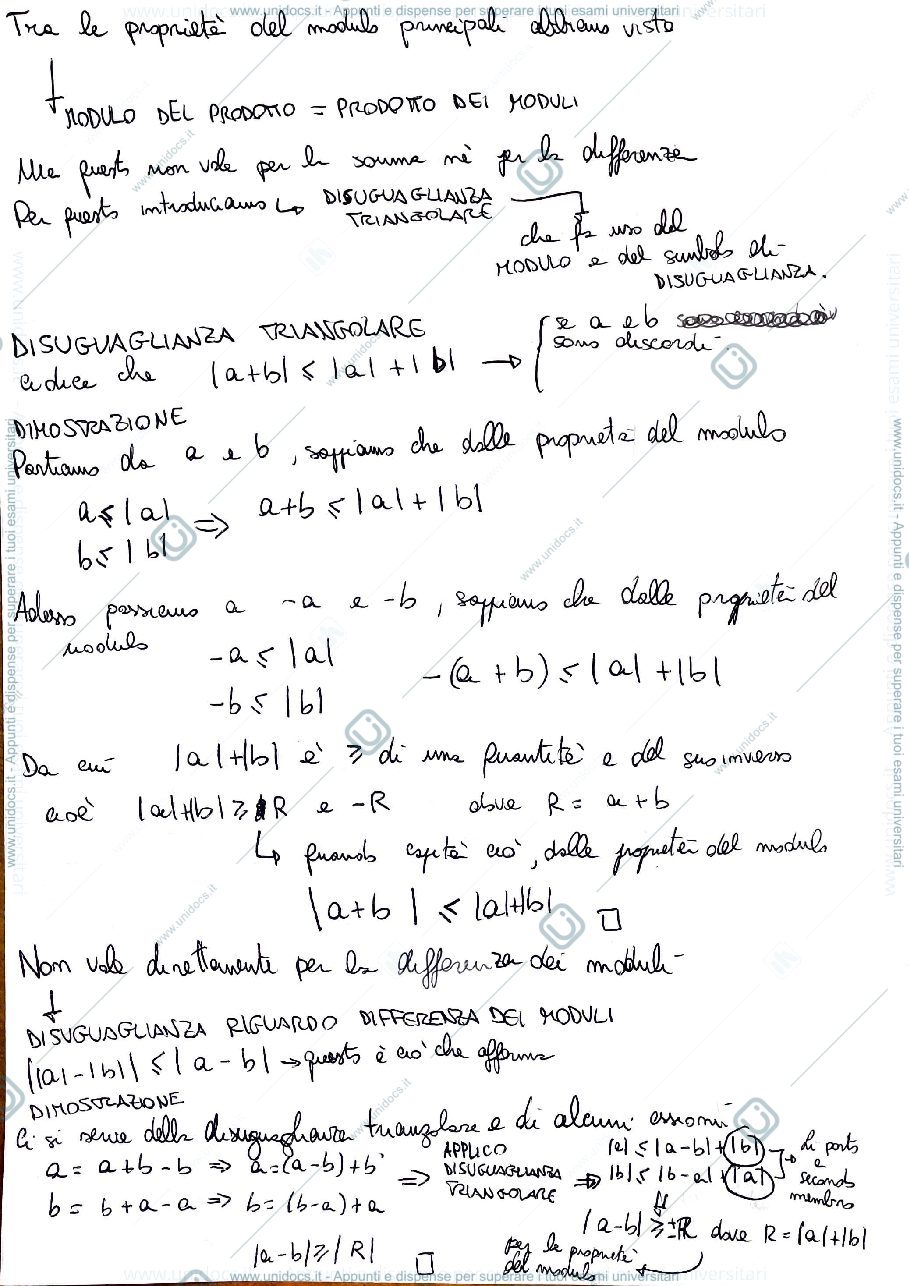 www.unidocs.it - Appunti e dispense per superare i tuoi esami universitari
Tra le proprietà del modulo principali abbiamo visto
MODULO DEL PRODOTTO = PRODOTTO DEI MODULI
Ma questo non vale per la somma nè per la differenza
Per questo introduciamo ↳ DISUGUAGLIANZA
TRIANGOLARE
che fa uso del
MODULO e del simbolo di
DISUGUAGLIANZA.
DISUGUAGLIANZA TRIANGOLARE
ci dice che |a+b| ≤ |a| + |b| →
se a e b
sono discordi
DIMOSTRAZIONE
Partiamo da a e b, sappiamo che dalle proprietà del modulo
a ≤ |a| ⇒ a+b ≤ |a| + |b|
b ≤ |b|
Adesso passiamo a -a e -b, sappiamo che dalle proprietà del
modulo
-a ≤ |a|
-b ≤ |b|
-(a + b) ≤ |a| + |b|
Da cui |a|+|b| è ≥ di una quantità e del suo inverso
cioè |a|+|b| ≥ R e -R dove R = a + b
↳ quando capita ciò, dalle proprietà del modulo
|a + b| ≤ |a|+|b| □
Non vale direttamente per la differenza dei moduli
↓
DISUGUAGLIANZA RIGUARDO DIFFERENZA DEI MODULI
||a| - |b|| ≤ |a - b| → questo è ciò che afferma
DIMOSTRAZIONE
Ci si serve della disuguaglianza triangolare e di alcuni assiomi
a = a + b - b ⇒ a = (a-b) + b
b = b + a - a ⇒ b = (b-a) + a
⇒ APPLICO
DISUGUAGLIANZA
TRIANGOLARE
⇒ |a| ≤ |a - b| + |b|
|b| ≤ |b - a| + |a|
→ Li porto
a
secondo
membro
|a - b| ≥ ±R dove R = |a| + |b|
per le proprietà
del modulo
|a - b| ≥ |R| □
www.unidocs.it - Appunti e dispense per superare i tuoi esami universitari